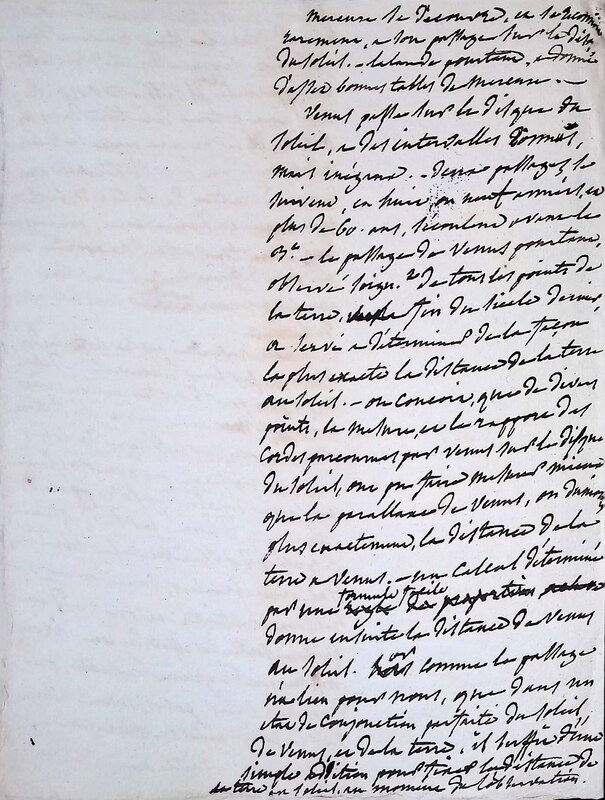 mercure se decouvre, et se reconn
rarement, a son passage sur le disq
du soleil. - lalande pourtant, a donné
d'assez bonnes tables de mercure. -
Venus passe sur le disque du
soleil, a des intervalles bornés,
mais inégaux. - deux passages se
suivent, en huit ou neuf années, et
plus de 60. ans, s'écoulent avant le
3e. - le passage de Venus pourtant,
observé soign.t de tous les points de
la terre, fin du siecle dernier
a servi a determiner de la façon
la plus exacte la distance de la terre
au soleil. - on concoit, que de divers
points, la mesure, et le rapport des
cordes parcourues par venus sur le disque
du soleil, ont pu faire mesurer mieux
que la parallaxe de Venus, ou du moins
plus exactement, la distance de la
terre a Venus. - un calcul déterminé
par une formule facile
donne ensuite la distance de Venus
au soleil. or comme le passage
n'a lieu pour nous, que dans un
etat de conjonction parfaite du soleil
de Venus, et de la terre, il suffit d'une
simple addition pour fixer la distance de
la terre au soleil, au moment de l'observation.